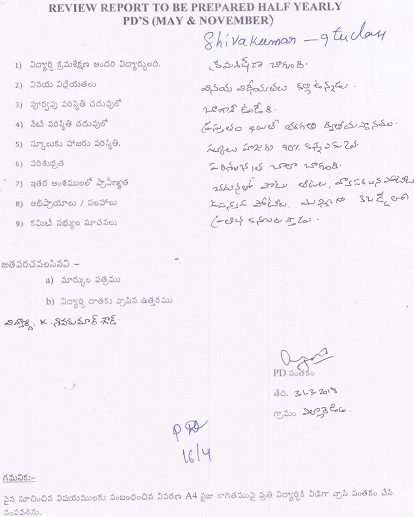 REVIEW REPORT TO BE PREPARED HALF YEARLY
PD'S (MAY & NOVEMBER)
Shivakumar - 9th class
1) విద్యార్థి క్రమశిక్షణ అందరి విద్యార్థులది. క్రమశిక్షణ బాగుంది.
2) వినయ విధేయతలు వినయ విధేయతలు కల్గి ఉన్నాడు.
3) పూర్వపు పరిస్థితి చదువులో బాగానే ఉండేది.
4) నేటి పరిస్థితి చదువులో ప్రస్తుతం
5) స్కూలుకు హాజరు పరిస్థితి. స్కూలు హాజరు 90%
6) పరిశుభ్రత పరిశుభ్రత చాలా బాగుంది.
7) ఇతర అంశములలో ప్రావీణ్యత చదువుతో పాటు ఆటలు,
8) అభిప్రాయాలు / సలహాలు
9) కమిటీ సభ్యుల సూచనలు
జతపరచవలసినవి –
a) మార్కుల పత్రము
b) విద్యార్థి దాతకు వ్రాసిన ఉత్తరము
విద్యార్థి: K. శివకుమార్ గౌడ్.
PD సంతకం
తేది. 31-3-2018
గ్రామం
PD
16/4
గమనిక:-
పైన సూచించిన విషయములకు సంబంధించిన వివరణ A4 సైజు కాగితముపై ప్రతి విద్యార్థికి విడిగా వ్రాసి సంతకం చేసి
పంపవలెను.